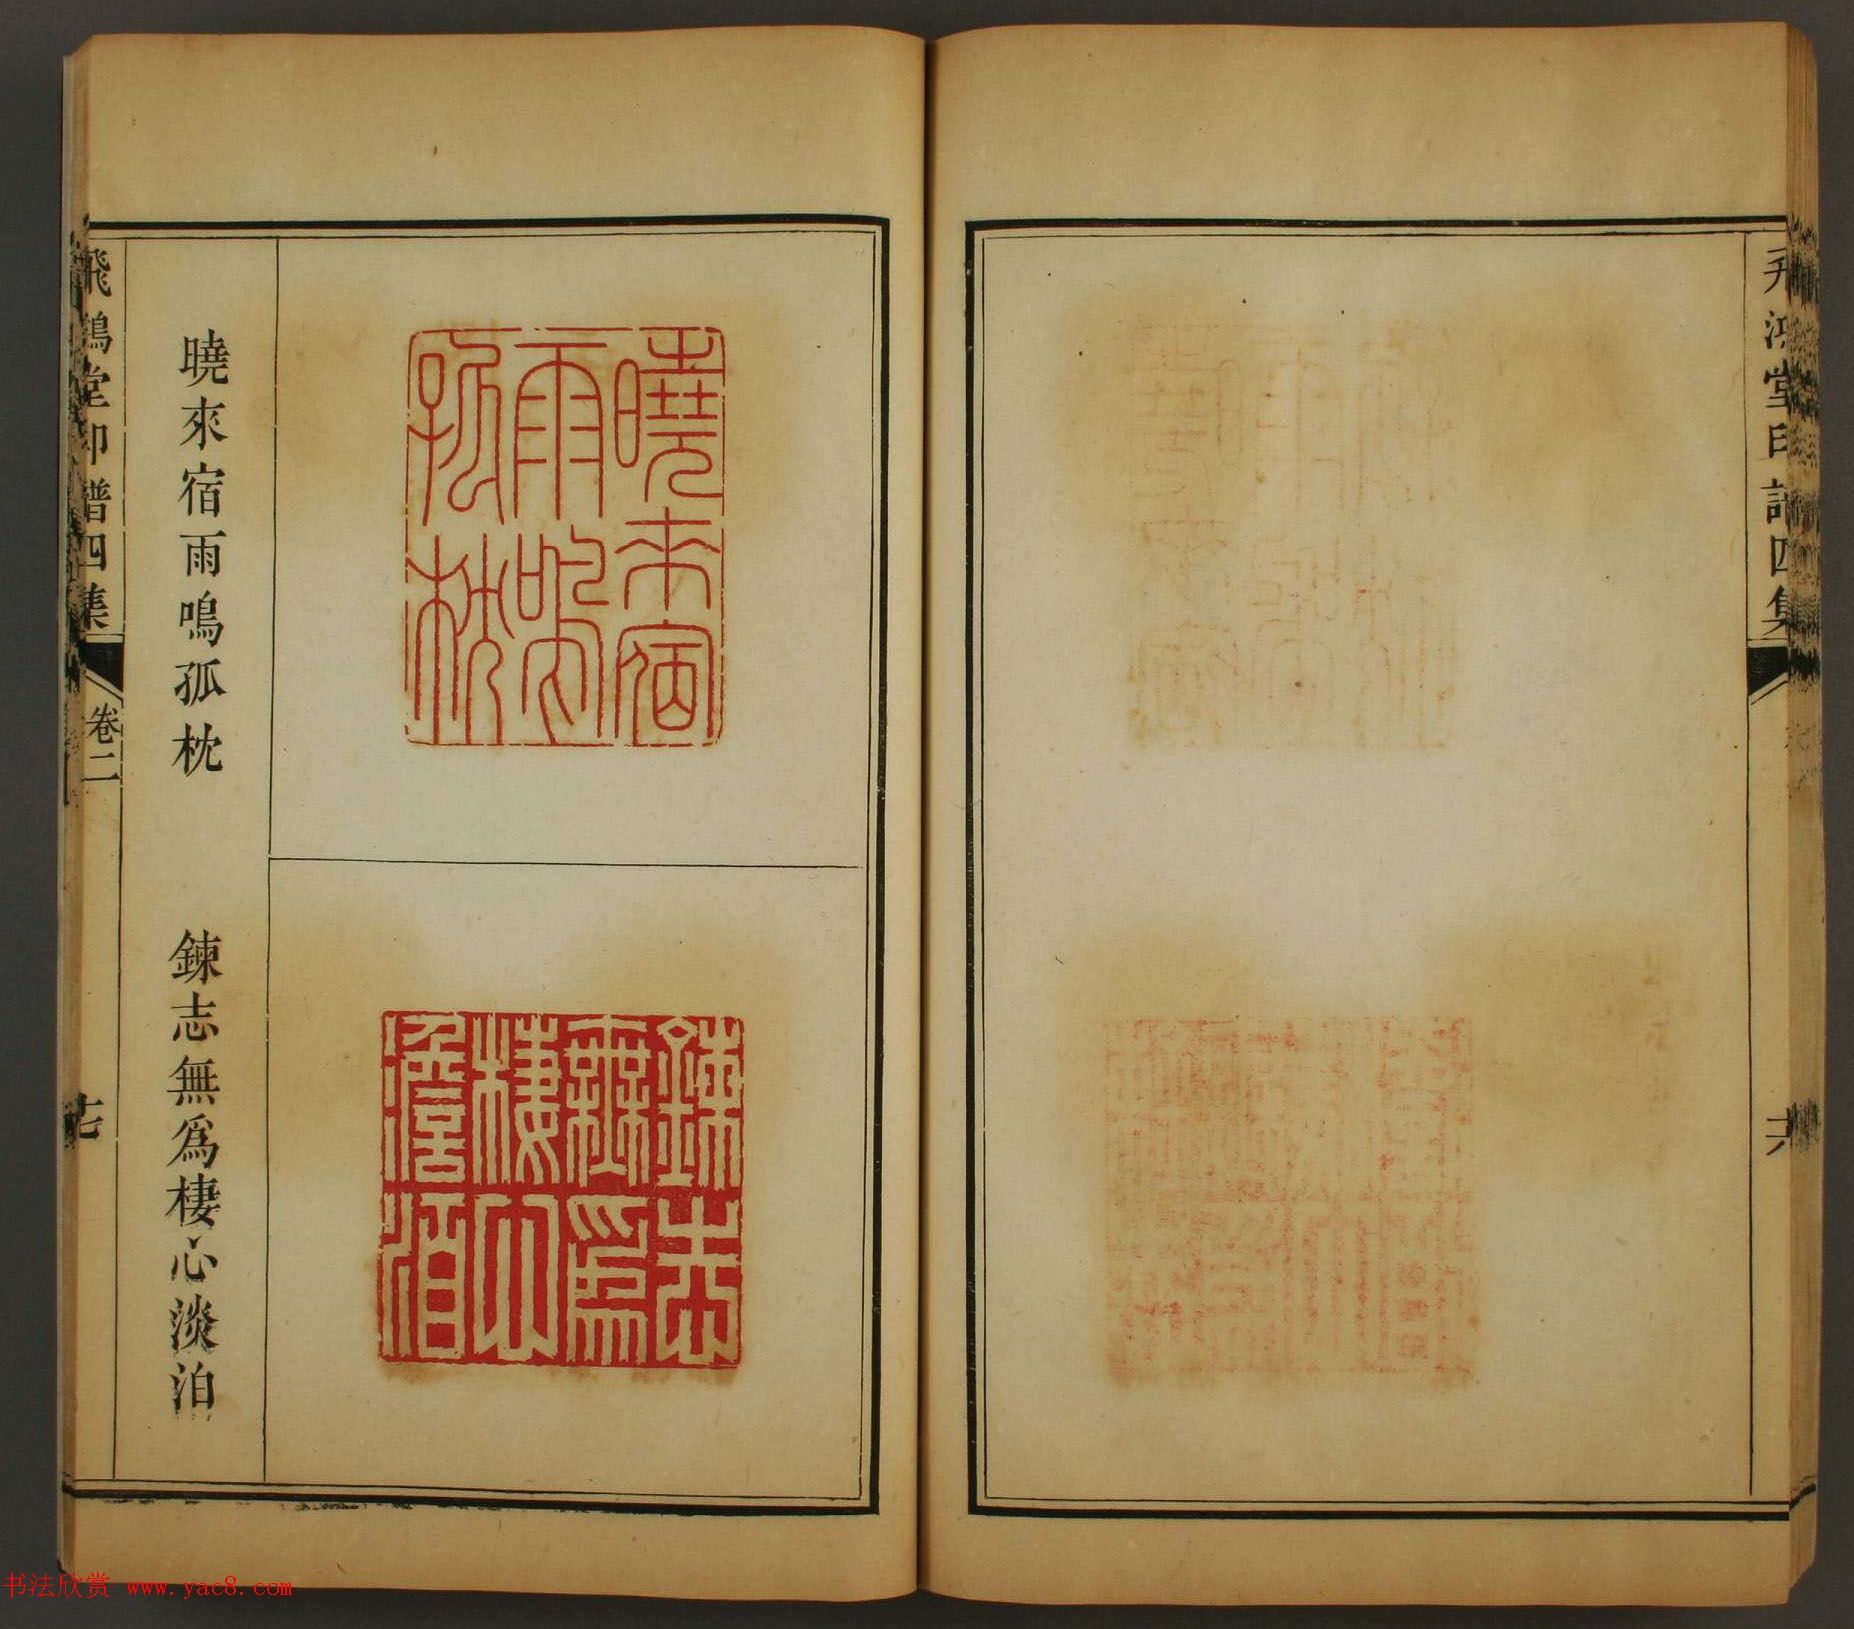 飛鴻堂印譜四集
六
曉來宿雨鳴孤枕
鍊志無爲棲心淡泊
曉來宿雨鳴孤枕
鍊志無爲棲心澹泊
飛鴻堂印譜四集
卷二
七
书法欣赏 www.yac8.com